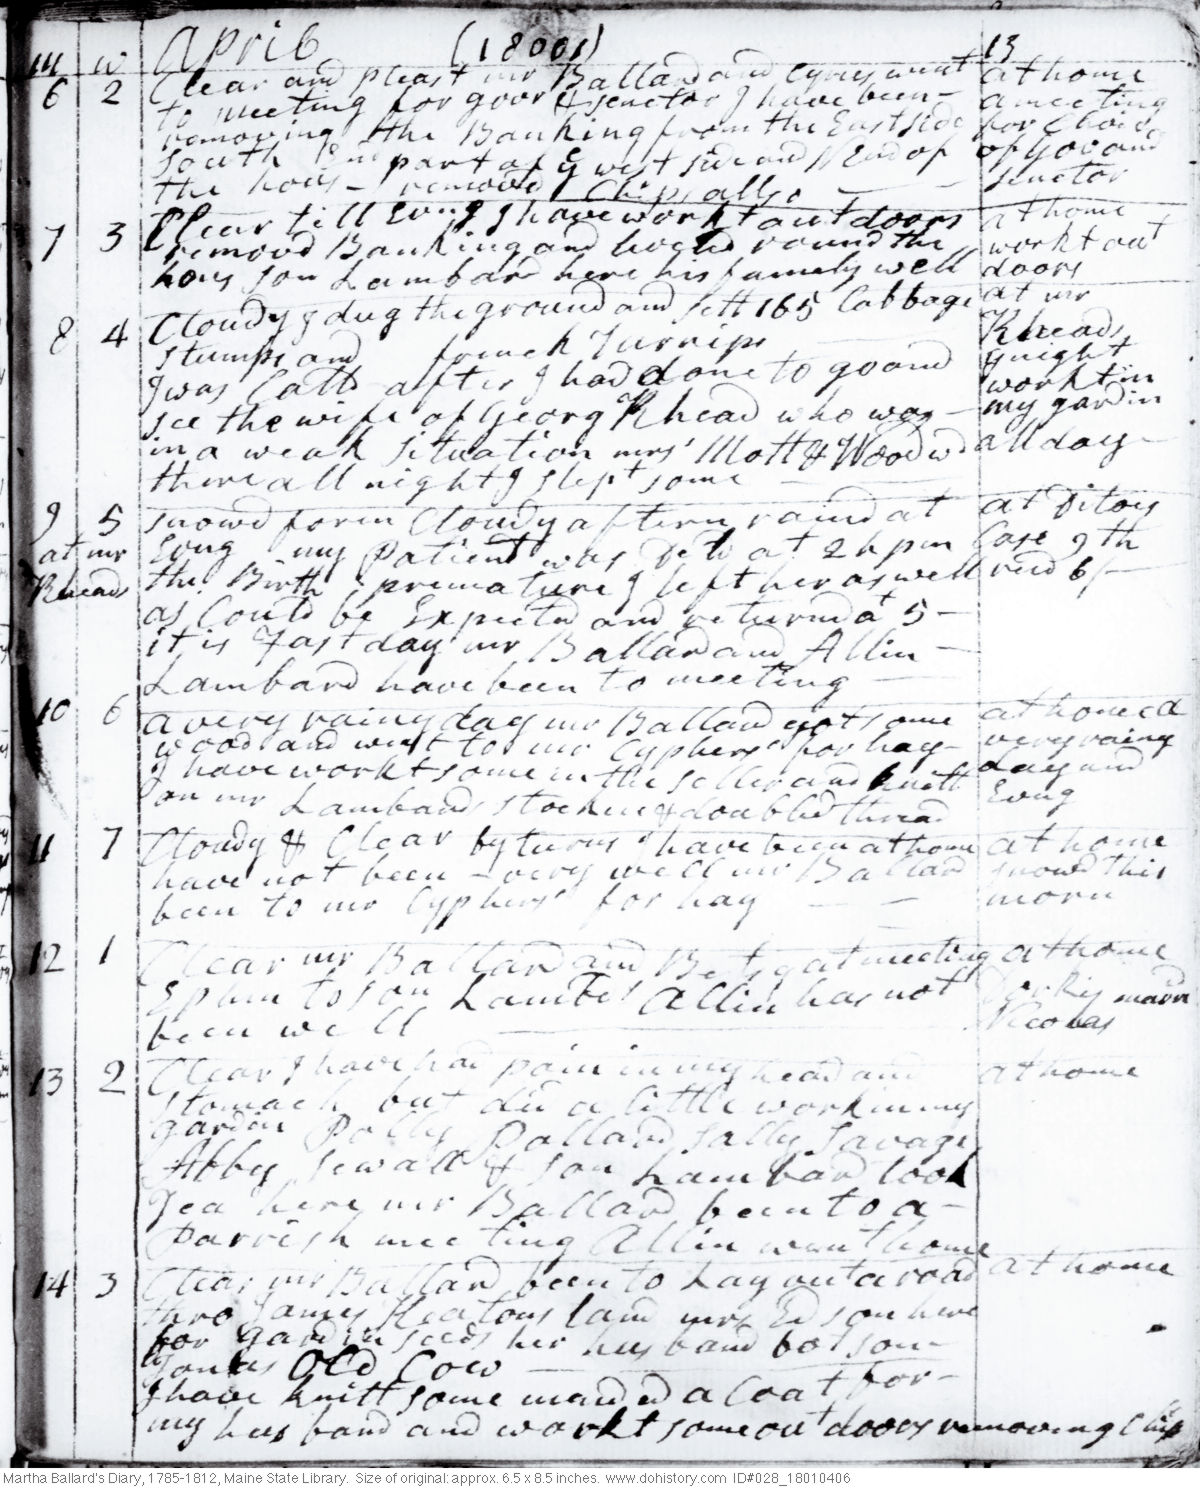 m w April (1801) 13
6 2 Clear and pleast mr Ballard and Cyrus went at home
to meeting for govr & senetor I have been a meeting
removing the Banking from the East side for Choice
south End part of ye west side and N End of of Gov and
the hous removed Chips allso senetor
7 3 Clear till Evng I have workt out doors at home
removd Banking and hoed round the workt out
hous son Lambard here his family well doors
8 4 Cloudy I dug the ground and sett 165 Cabbage at mr
stumps and french Turnips Rheads
I was Calld after I had done to go and night
see the wife of Georg Rhead who was workt in
in a weak situation mrs Mott & Woodwd my gardin
there all night I slept some all day
9 5 snowd forenn Cloudy aftern raind at at Ditoys
at mr Evng my patient was Deld at 2 h pm Case 9th
Rheads the Birth premature I left her as well recd 6/
as Could be Expected and returnd at 5
it is Fast day mr Ballard and Allin
Lambard have been to meeting
10 6 a very rainy day mr Ballard got some at home a
wood and went to mr Cyphers for hay very rainy
I have workt some in the seller and knitt day and
on mr Lambards stockin & doubled thread Evng
11 7 Cloudy & Clear by turns I have been at home at home
have not been very well mr Ballard snowd this
been to mr Cyphers for hay morn
12 1 Clear mr Ballard and Betsy at meeting at home
Ephm to son Lambds Allin has not
been well
13 2 Clear I have had pain in my head and at home
stomach but did a little work in my
gardin Polly Pollard Sally Savage
Abby Sewall & son Lambard took
Tea here mr Ballard been to a
Parrish meeting Allin went home
14 3 Clear mr Ballard been to Lay out a road at home
thro James Heatons land mrs Edson here
for gardin seeds her husband bot son
Jonas Old Cow
I have knitt some mended a Coat for
my husband and workt some out doors removing Chips
Martha Ballard's Diary, 1785-1812, Maine State Library. Size of original: approx. 6.5 x 8.5 inches. www.dohistory.com ID#028_18010406